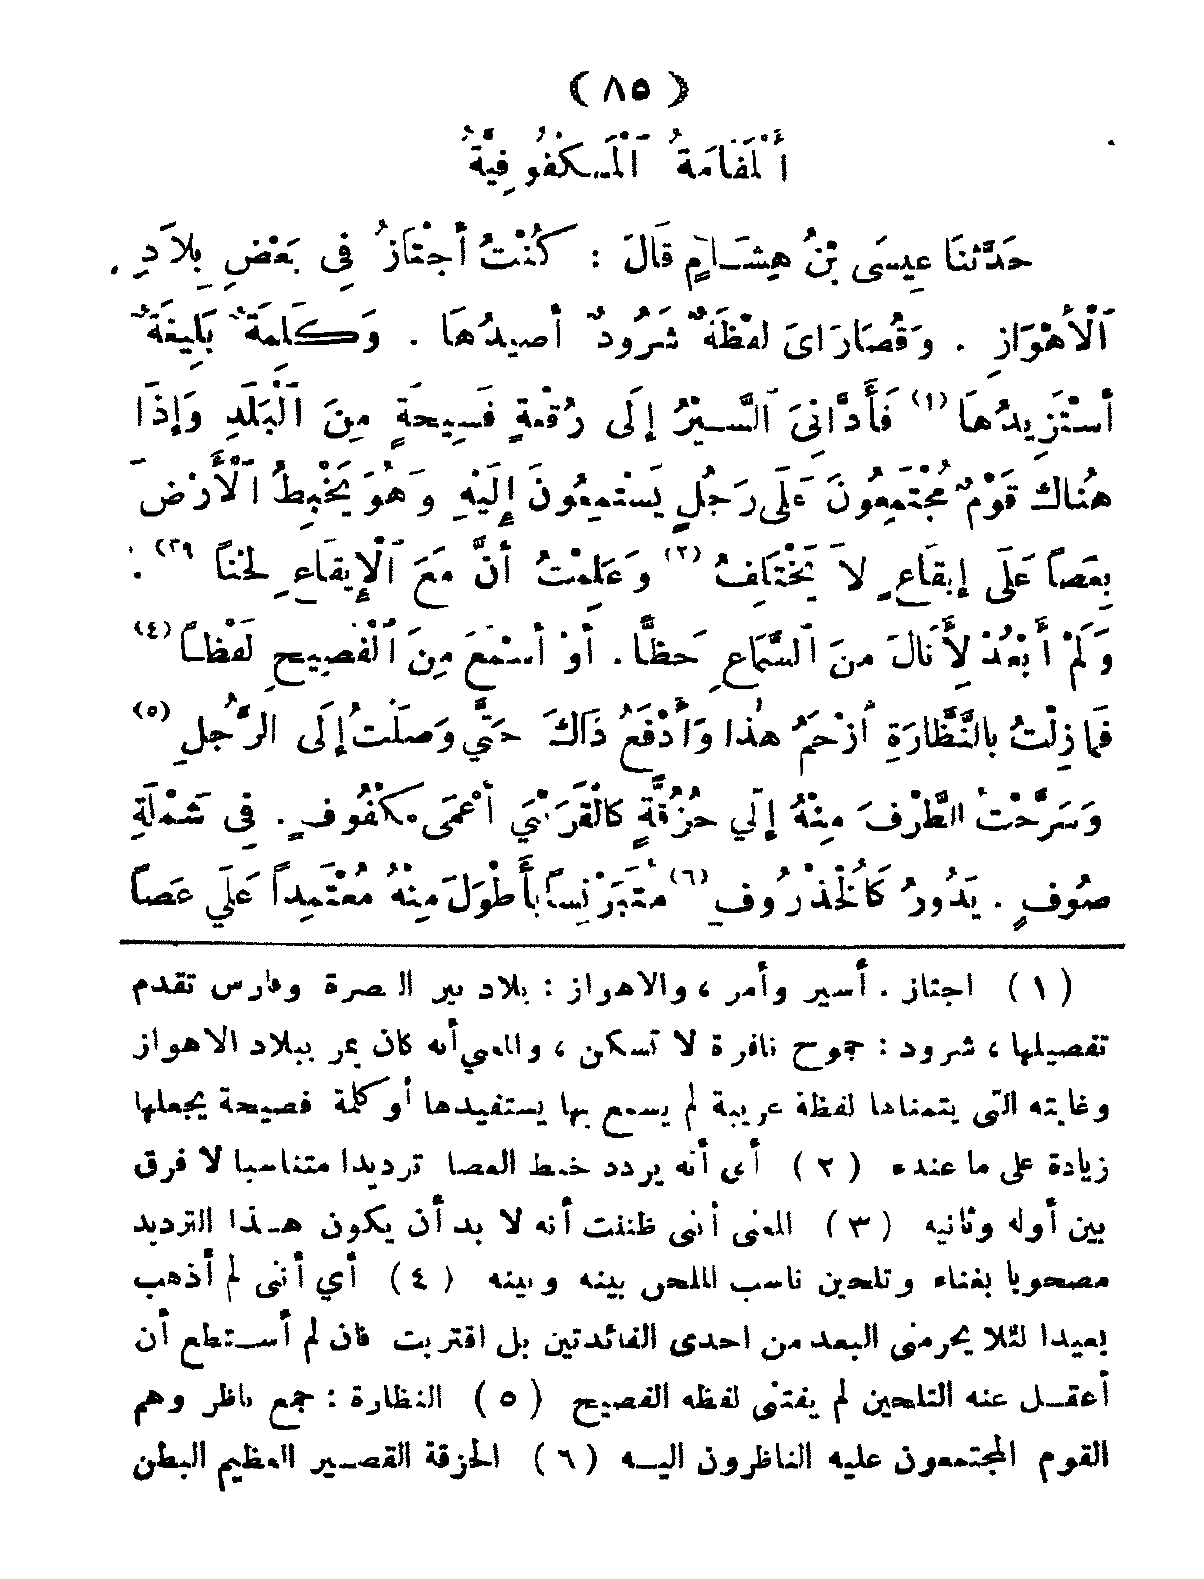 ( ٨٥ )
أَلْمَقَامَةُ ٱلْمَكْفُوفِيَّةُ
حَدَّثَنَا عِيسَى بْنُ هِشَامٍ قَالَ : كُنْتُ أَجْتَازُ فِى بَعْضِ بِلاَدِ
ٱلْأَهْوَازِ . وَقُصَارَاىَ لفْظَةٌ شَرُودٌ أصيدُهَا . وَكَلِمَةٌ بَلِيغَةٌ
أسْتَزِيدُهَا (١) فَأَدَّانِىَ ٱلسَّيْرُ إِلَى رُقْعةٍ فَسِيحَةٍ مِنَ ٱلْبَلَدِ وَإِذَا
هُنَاكَ قَوْمٌ مُجْتَمِعُونَ عَلَى رَجُلٍ يَسْتَمِعُونَ إِلَيْهِ وَهُوَ يَخْبِطُ ٱلْأَرْضَ
بِعَصاً عَلَى إيقَاعٍ لاَ يَخْتَلِفُ (٢) وَعَلِمْتُ أَنَّ مَعَ ٱلْإِيقَاعِ لَحْناً (٣) .
وَلَمْ أَبْعُدْ لِأَنَالَ منَ ٱلسَّمَاعِ حَظًّا . أوْ أسْمَعَ مِنَ ٱلْفَصِيحِ لَفْظاً (٤)
فَمَا زِلْتُ بالنَّظَّارَةِ أزْحَمُ هٰذَا وَأَدْفَعُ ذَاكَ حَتَّي وَصَلْتُ إِلَى الرَّجُلِ (٥)
وَسَرَّحْتُ الطَّرْفَ مِنْهُ إِلَي حُزُقَّةٍ كالْقَرَنْبَي أعْمَى مكْفُوفٍ . فِى شَمْلَةِ
صُوفٍ . يَدُورُ كَالْخُذْرُوفِ (٦) متَبَرْنِساً بأَطْوَلَ مِنْهُ مُعْتَمِداً عَلَي عَصاً
(١) اجتاز . أسير وأمر ، والاهواز : بلاد بين البصرة وفارس تقدم
تفصيلها ، شرود : جموح نافرة لا تسكن ، والمعنى أنه كان يمر ببلاد الاهواز
وغايته التى يتمناها لفظة غريبة لم يسمع بها يستفيدها أو كلمة فصيحة يجعلها
زيادة على ما عنده (٢) أى أنه يردد خبط العصا ترديدا متناسبا لا فرق
بين أوله وثانيه (٣) المعنى أننى ظننت أنه لا بد أن يكون هذا الترديد
مصحوبا بغناء وتلحين ناسب الملحن بينه وبينه (٤) أي أننى لم أذهب
بعيدا لئلا يحرمنى البعد من احدى الفائدتين بل اقتربت فان لم أستطع أن
أعقل عنه التلحين لم يفتنى لفظه الفصيح (٥) النظارة : جمع ناظر وهم
القوم المجتمعون عليه الناظرون اليه (٦) الحزقة القصير العظيم البطن